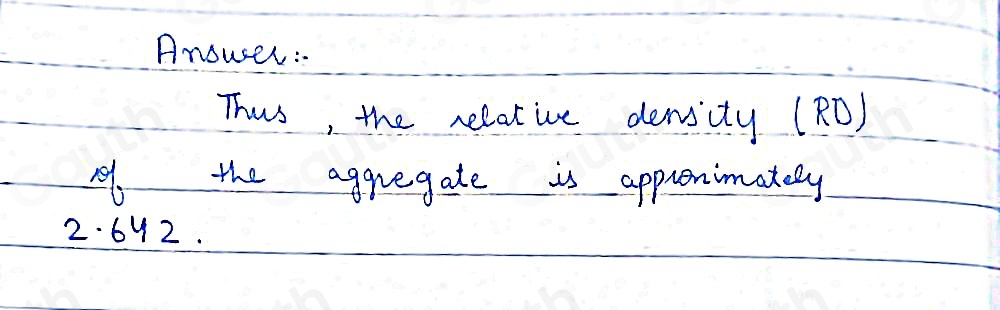 Answer:-
Thus, the relative density (RD)
of the aggregate is approximately
2.642.